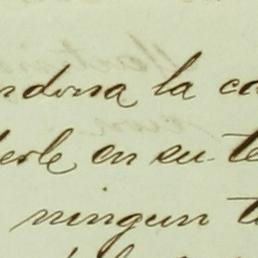 ndona la ca
derle en su te
ningun t